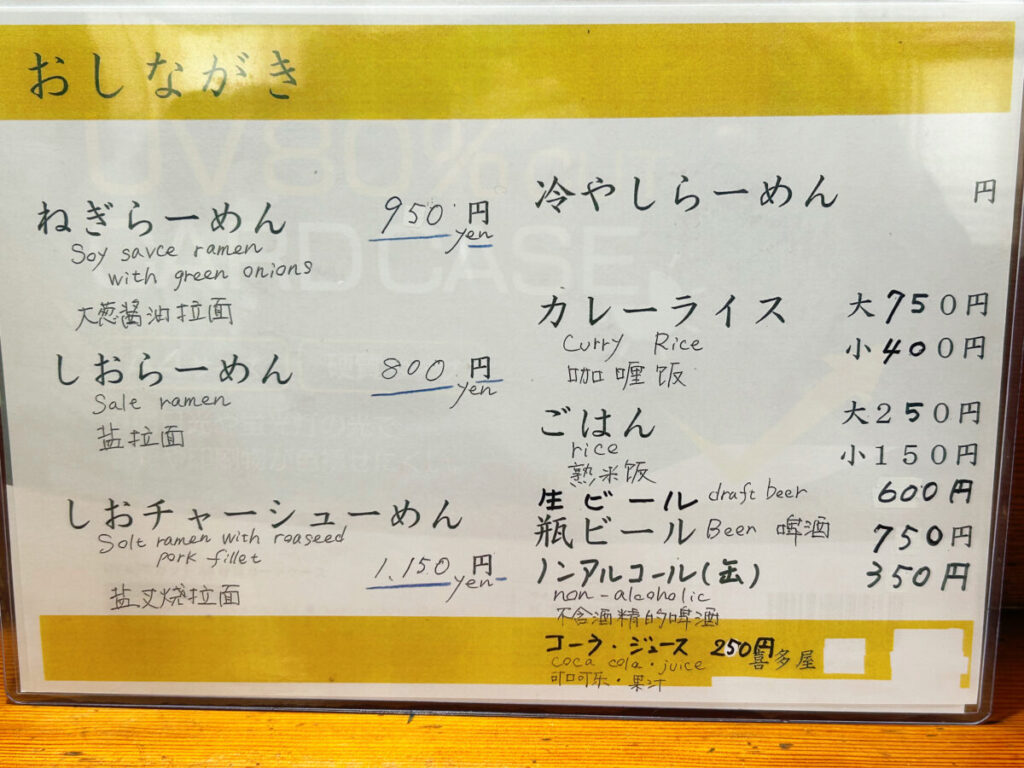 おしながき
ねぎらーめん 950円
yen
Soy savce ramen
with green onions
大葱醤油拉面
しおらーめん 800円
yen
Sale ramen
盐拉面
しおチャーシューめん
Solt ramen with roaseed
pork fillet
1,150円
yen
盐叉烧拉面
冷やしらーめん 円
カレーライス 大750円
Curry Rice 小400円
咖喱饭
ごはん 大250円
rice 小150円
熟米饭
生ビール draft beer 600円
瓶ビール Beer 啤酒 750円
ノンアルコール(缶) 350円
non-alcoholic
不含酒精的啤酒
コーラ・ジュース 250円
coca cola・juice
可口可乐・果汁
喜多屋
UV80% CUT
CARD CASE